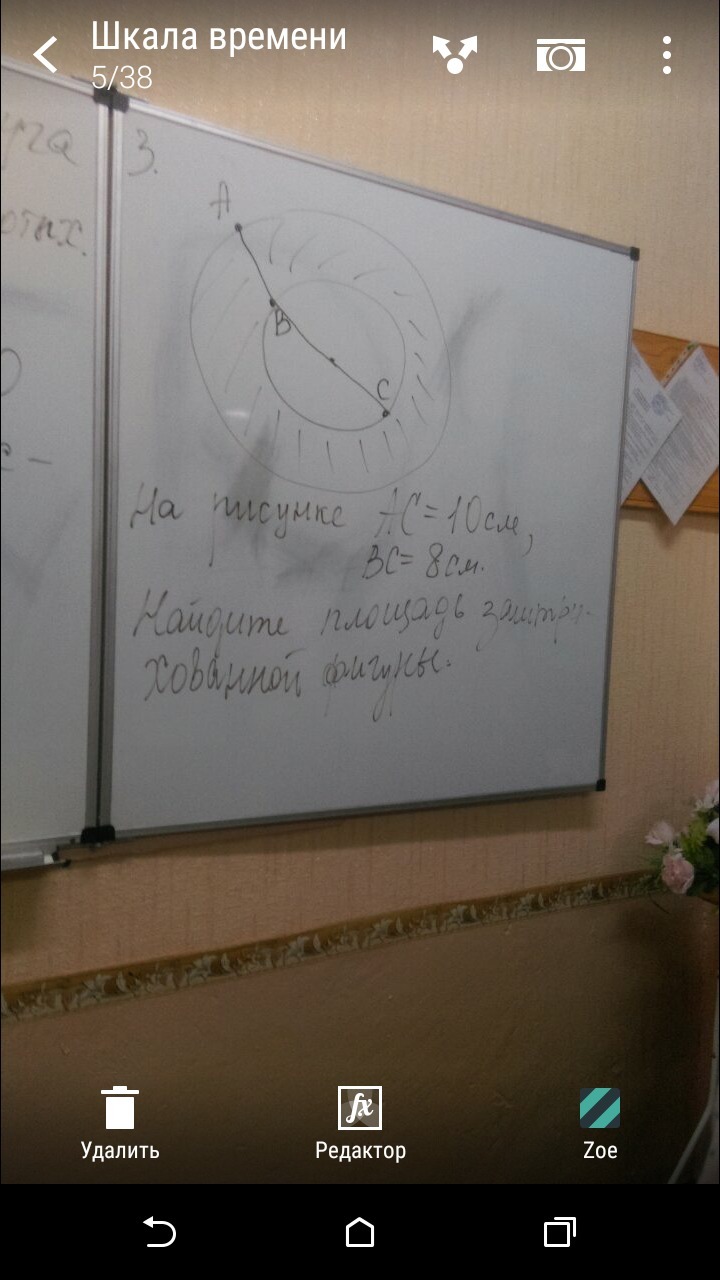 Шкала времени
5/38
3.
A
B
C
На рисунке AC = 10см,
BC = 8см.
Найдите площадь заштри-
хованной фигуры.
Удалить
Редактор
Zoe